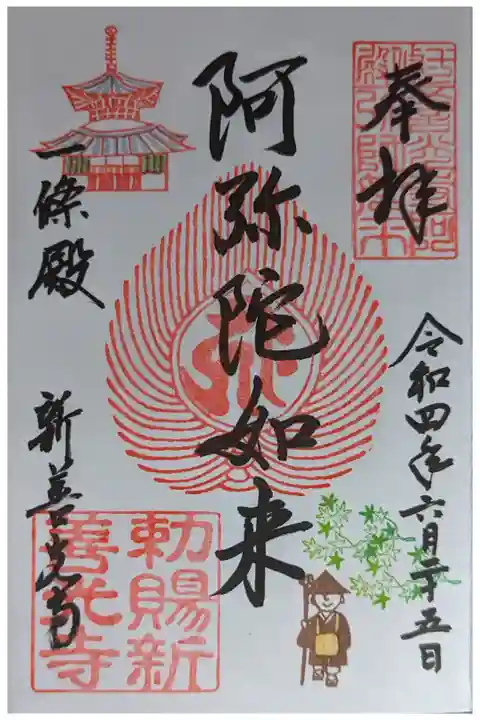 奉拝
令和四年六月二十五日
阿弥陀如来
一條殿
新善光寺
勅賜新
善光寺